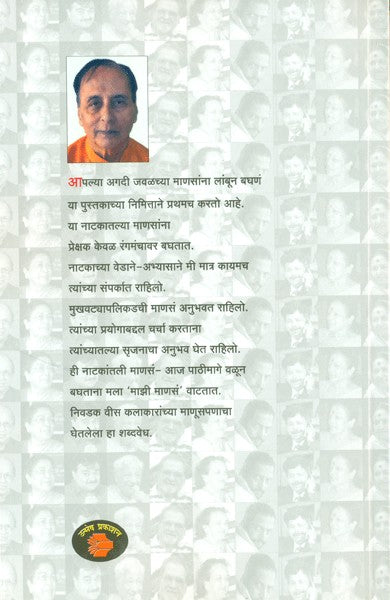 आपल्या अगदी जवळच्या माणसांना लांबून बघणं
या पुस्तकाच्या निमित्ताने प्रथमच करतो आहे.
या नाटकातल्या माणसांना
प्रेक्षक केवळ रंगमंचावर बघतात.
नाटकाच्या वेडाने-अभ्यासाने मी मात्र कायमच
त्यांच्या संपर्कात राहिलो.
मुखवट्यापलिकडची माणसं अनुभवत राहिलो.
त्यांच्या प्रयोगाबद्दल चर्चा करताना
त्यांच्यातल्या सृजनाचा अनुभव घेत राहिलो.
ही नाटकांतली माणसं- आज पाठीमागे वळून
बघताना मला 'माझी माणसं' वाटतात.
निवडक वीस कलाकारांच्या माणूसपणाचा
घेतलेला हा शब्दवेध.
उन्मेष प्रकाशन